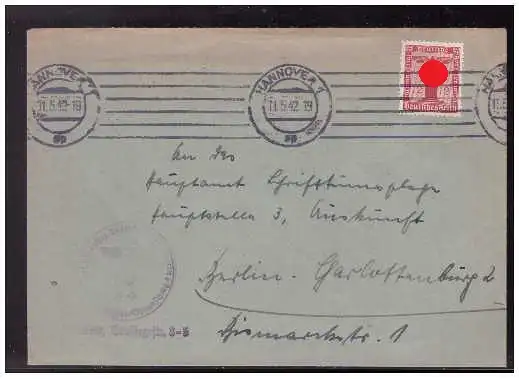 HANNOVER 1
11.5.42.19
HANNOVER 1
11.5.42.19
Deutsches Reich
An das
Hauptamt Schrifttumspflege
Hauptstelle 3, Auskunft
Berlin-Charlottenburg 2
Bismarckstr. 1